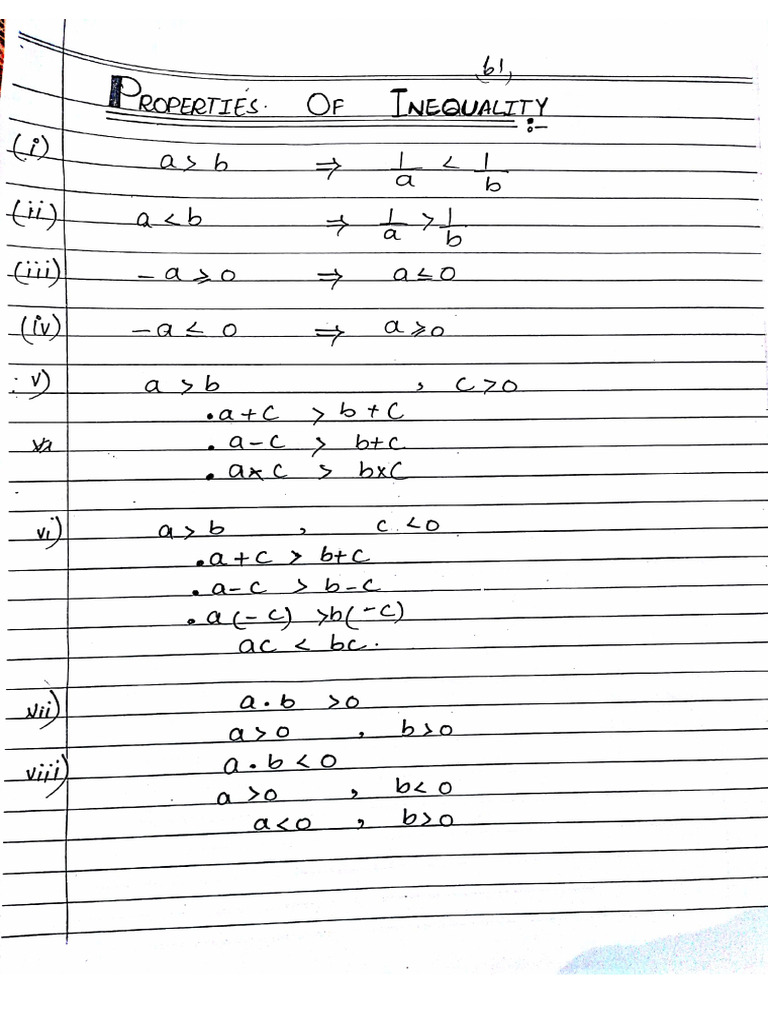 (61)
PROPERTIES. OF INEQUALITY :-
(i) a > b ⇒ 1/a < 1/b
(ii) a < b ⇒ 1/a > 1/b
(iii) -a ≥ 0 ⇒ a ≤ 0
(iv) -a ≤ 0 ⇒ a ≥ 0
v) a > b , c > 0
• a + c > b + c
• a - c > b + c
• a × c > b × c
vi) a > b , c < 0
• a + c > b + c
• a - c > b - c
• a (-c) > b (-c)
ac < bc.
vii) a . b > 0
a > 0 , b > 0
viii) a . b < 0
a > 0 , b < 0
a < 0 , b > 0